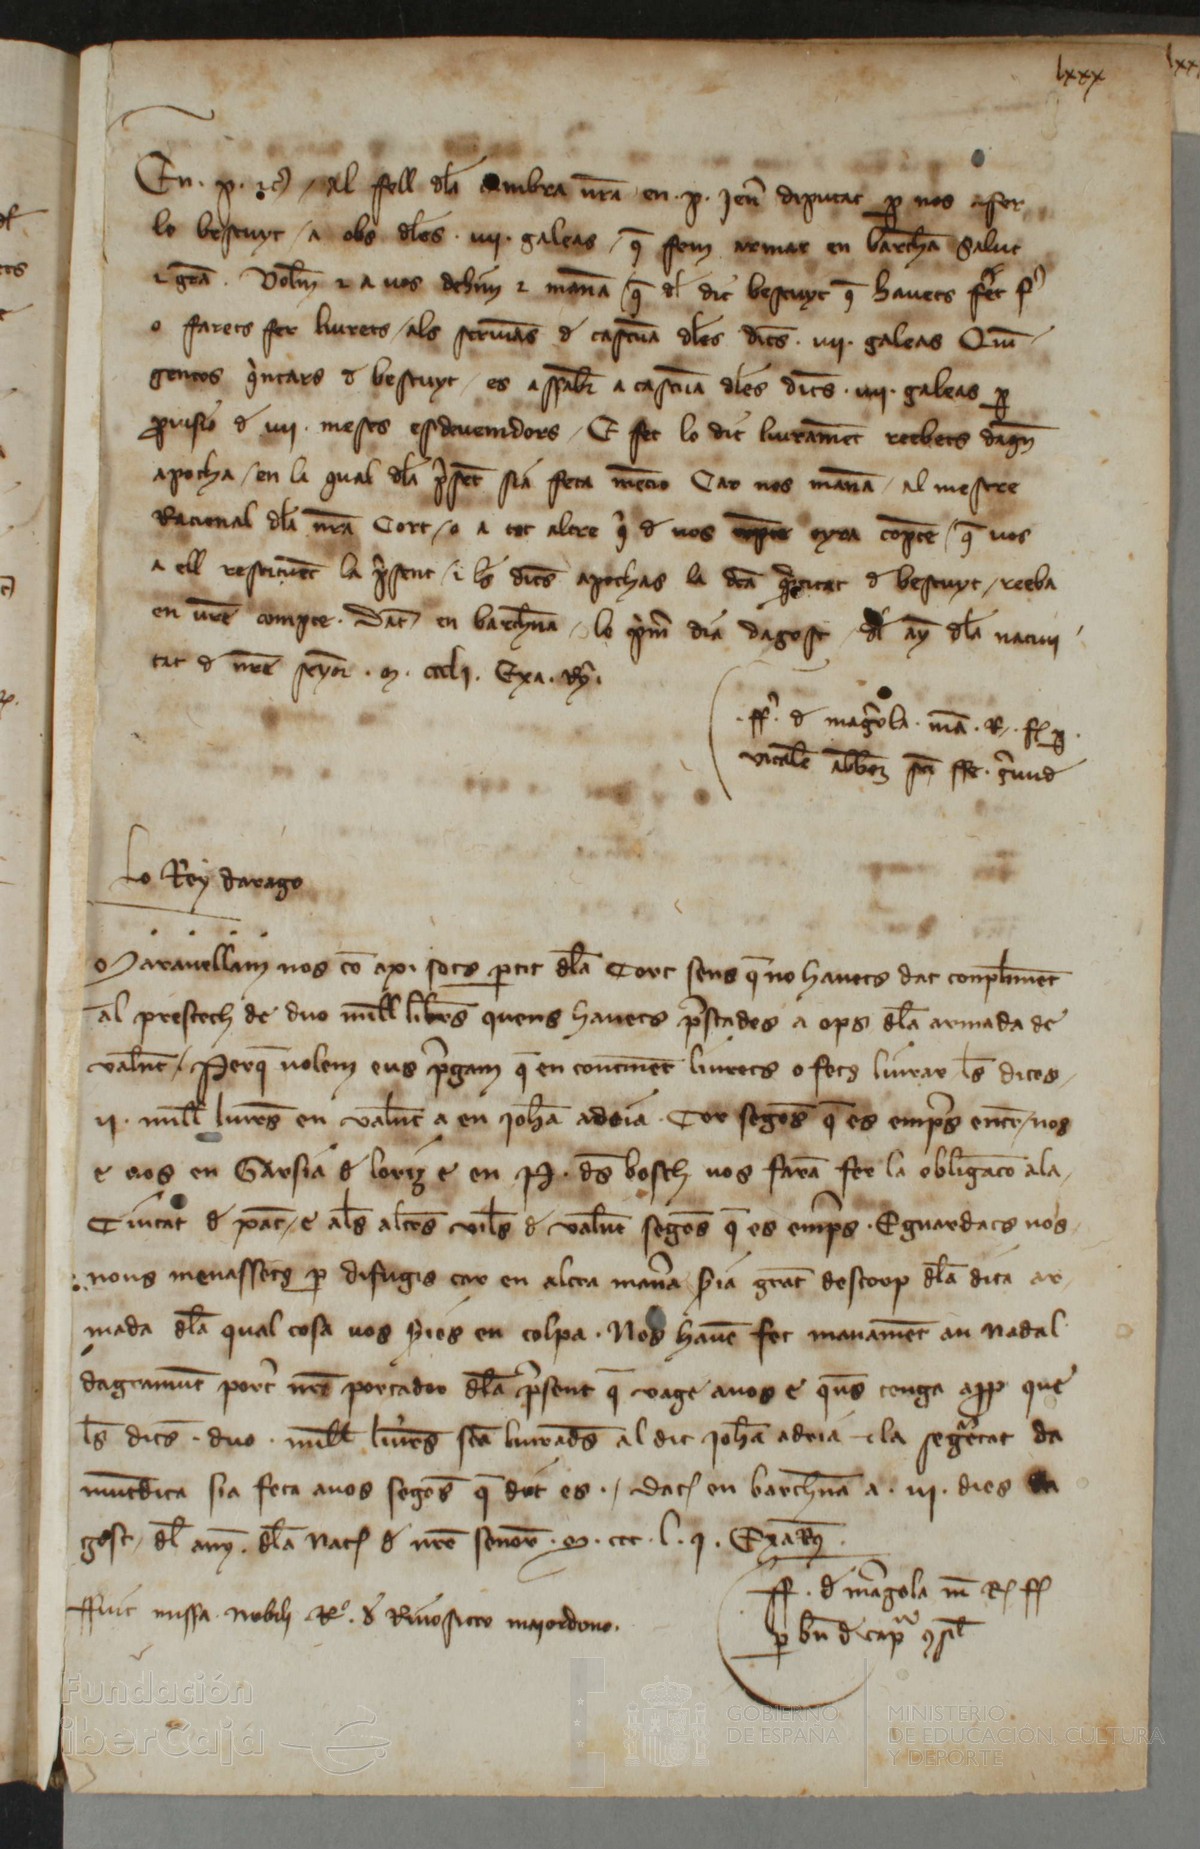 lxxx
En . p . &c) Al feel dla cambra nra en . p . Jen diputat p nos a fer
lo bescuyt a obs dles . iiii . galeas q fem armar en barchna Salut
& gra . Volem & a vos dehim & mana q dl dit bescuyt q havets fet fer
o farets fer liurets als scrivans d cascuna dles dits . iiii . galeas Quin
gentos quintars d bescuyt es assaber a cascuna dles dits . iiii . galeas p
provisio d iiii . meses esdevenidors . E fet lo dit liurament reebets dagn
apocha en la qual dla psent sia feta mencio Car nos manam al mestre
Racional dla nra Cort o a tot altre qui d vos oyra compte q vos
a ell restituent la psent i ls dites apochas la dta quantitat d bescuyt reeba
en vre compte . Dat en barchna lo prim dia dagost dl ay dla nativi
tat d nre senyor . M . cccli . Exa . Ry .
. ff . d magrola . ma . R . ff p .
vicale abbem sci ffe . Gerund
Lo Rey darago
Maravellam nos com axi sots partit dla Cort sens q no havets dat compliment
al prestech de duo mill libres quens havets prestades a ops dla armada de
valent / Perq volem eus pregam q en continent liurets o fets liurar ls dites
ii . mill liures en valent a en Joha adria . Cor segons q es empres entre nos
e vos en Garsia d loriz e en P . des bosch vos fara fer la obligacio a la
Ciutat d Xat e als altres vils d valent segons q es empres . E guardats nos
nous menassets p difugis car en altra manera sia gran destorp dla dita ar
mada dla qual cosa vos siets en colpa . Nos havem fet manament an Nadal
dagramunt porter nre portador dla psent q vage a vos e quns tenga a prop que
ls dits . duo . mill liures sien liurads al dit Joha adria i la seguretat da
muntdita sia feta a vos segons q dit es . / Dat en barchna a . iii . dies da
gost dl any . dla Nat d nre senor . M . ccc . l . i . Exa Ry .
ff . d magrola m R ff
p bn d capra consil
ffuit missa nobili Ro . d Rivosicco majordomo .
Fundación
iberCaja
GOBIERNO
DE ESPAÑA
MINISTERIO
DE EDUCACIÓN, CULTURA
Y DEPORTE